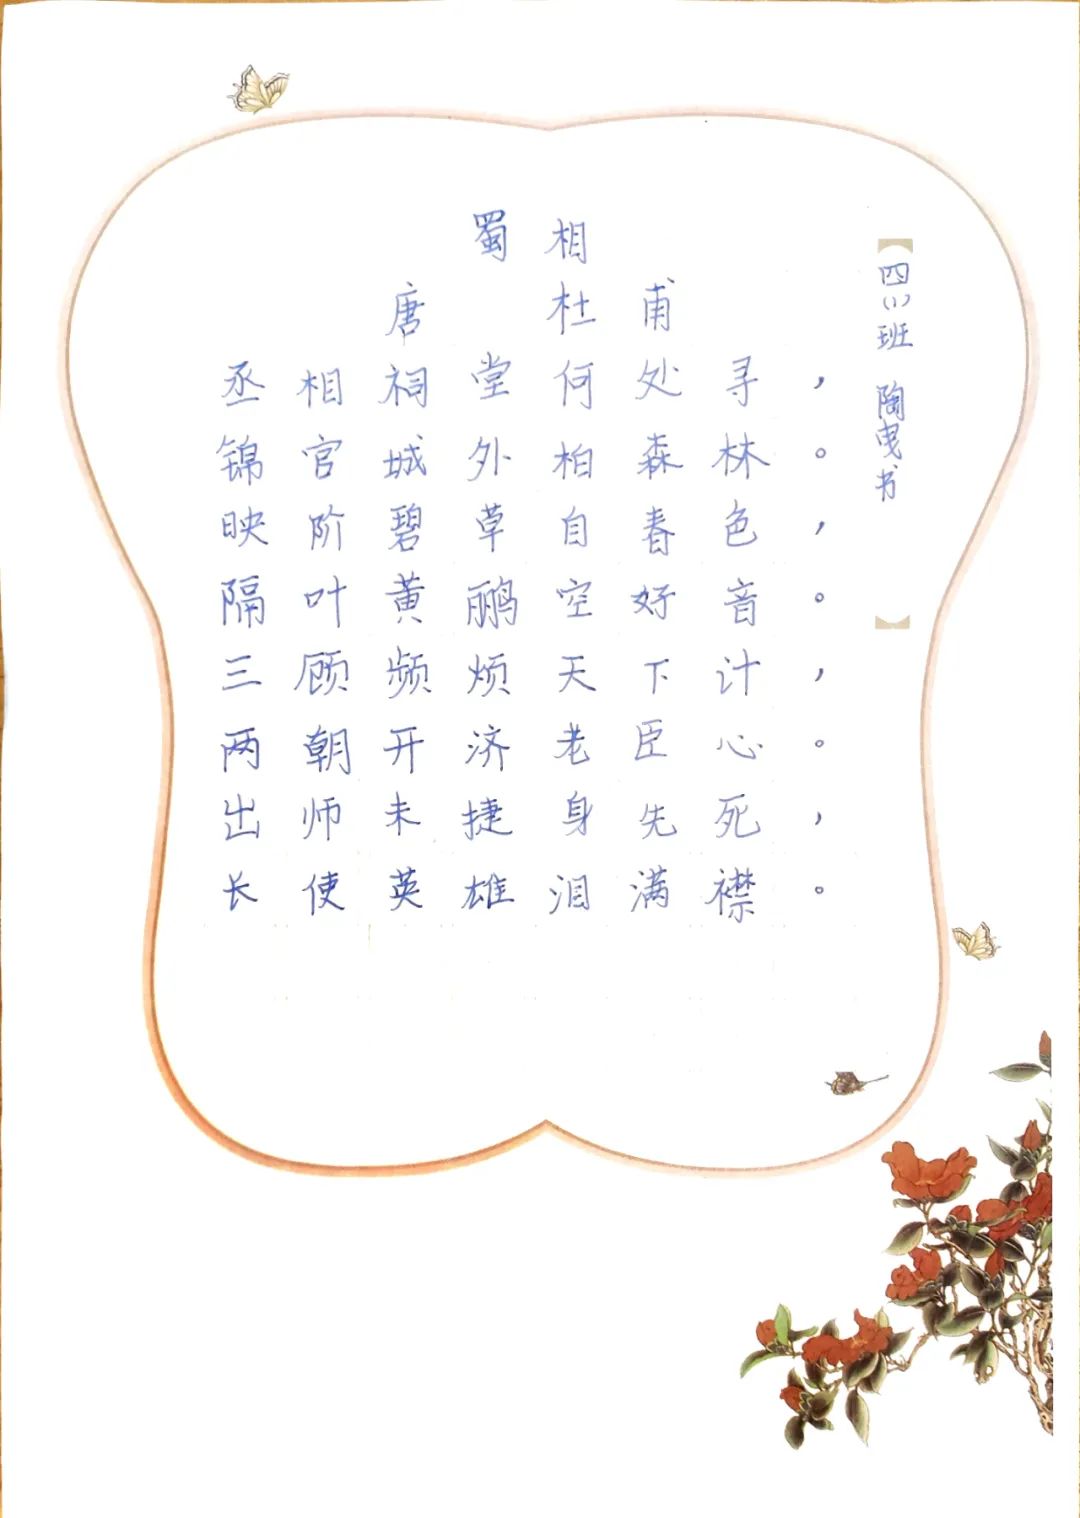 蜀相
唐 杜甫
丞相祠堂何处寻，
锦官城外柏森林。
映阶碧草自春色，
隔叶黄鹂空好音。
三顾频烦天下计，
两朝开济老臣心。
出师未捷身先死，
长使英雄泪满襟。
【四（1）班 陶曳书】